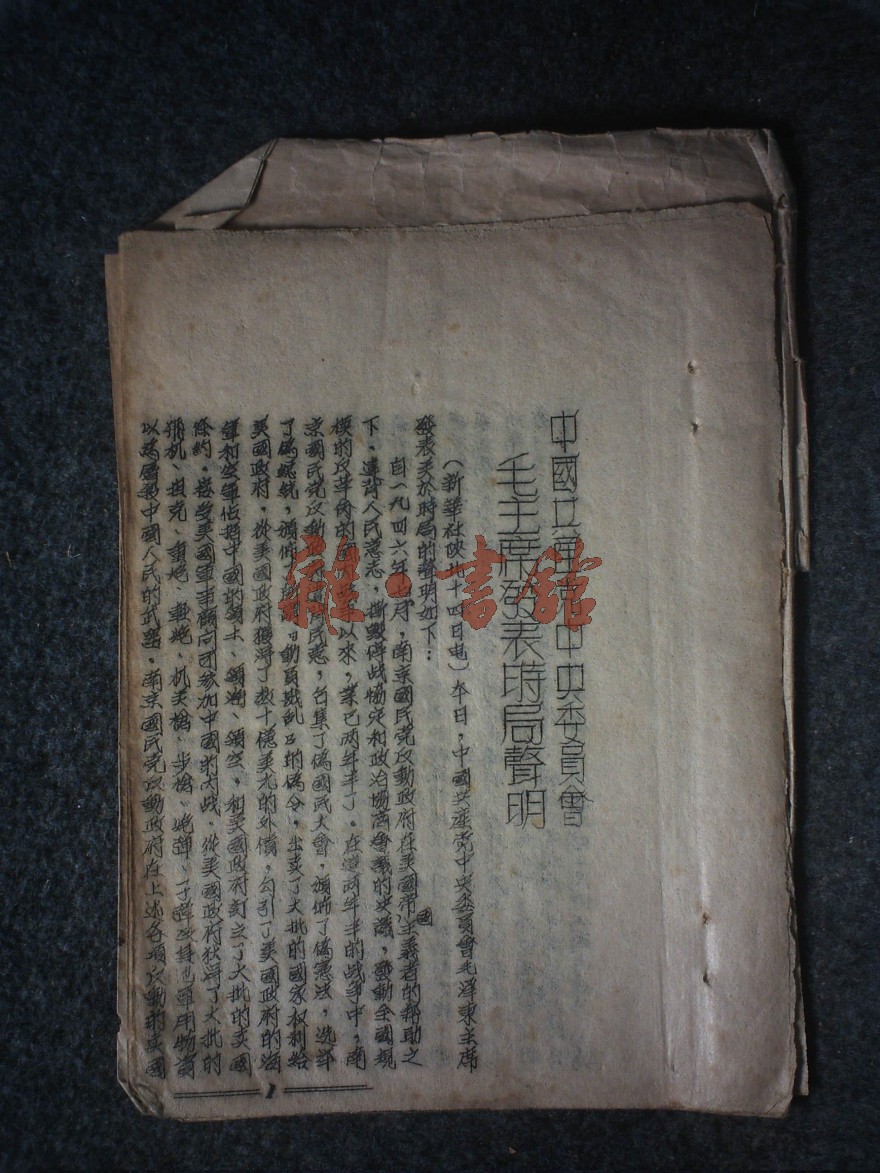 中國共產黨中央委員會
毛主席發表時局聲明
(新華社陝北十四日电)本日,中國共產党中央委員會毛泽東主席
發表关於時局的聲明如下:
自一九四六年七月,南京國民党反動政府在美國帝國主義者的帮助之
下,違背人民意志,撕毀停战协定和政治協商會議的决議,發動全國規
模的反革命的國內战爭以來,業已两年半了。在這两年半的战爭中,南
京國民党反動政府違反民意,召集了偽國民大會,頒佈了偽憲法,选举
了偽總統,頒佈了所謂「動員戡乱」的偽令,出卖了大批的國家权利給
美國政府,從美國政府獲得了数十億美元的外債,勾引了美國政府的海
軍和空軍佔據中國的領土、領海、領空,和美國政府訂立了大批的卖國
條約,接受美國軍事顧问团参加中國的内战,從美國政府获得了大批的
飛机、坦克、重炮、輕炮、机关槍、步槍、炮弹、子弹及其他軍用物資
以為屠殺中國人民的武器。南京國民党反動政府在上述各項反動的卖國
1
雜·書館